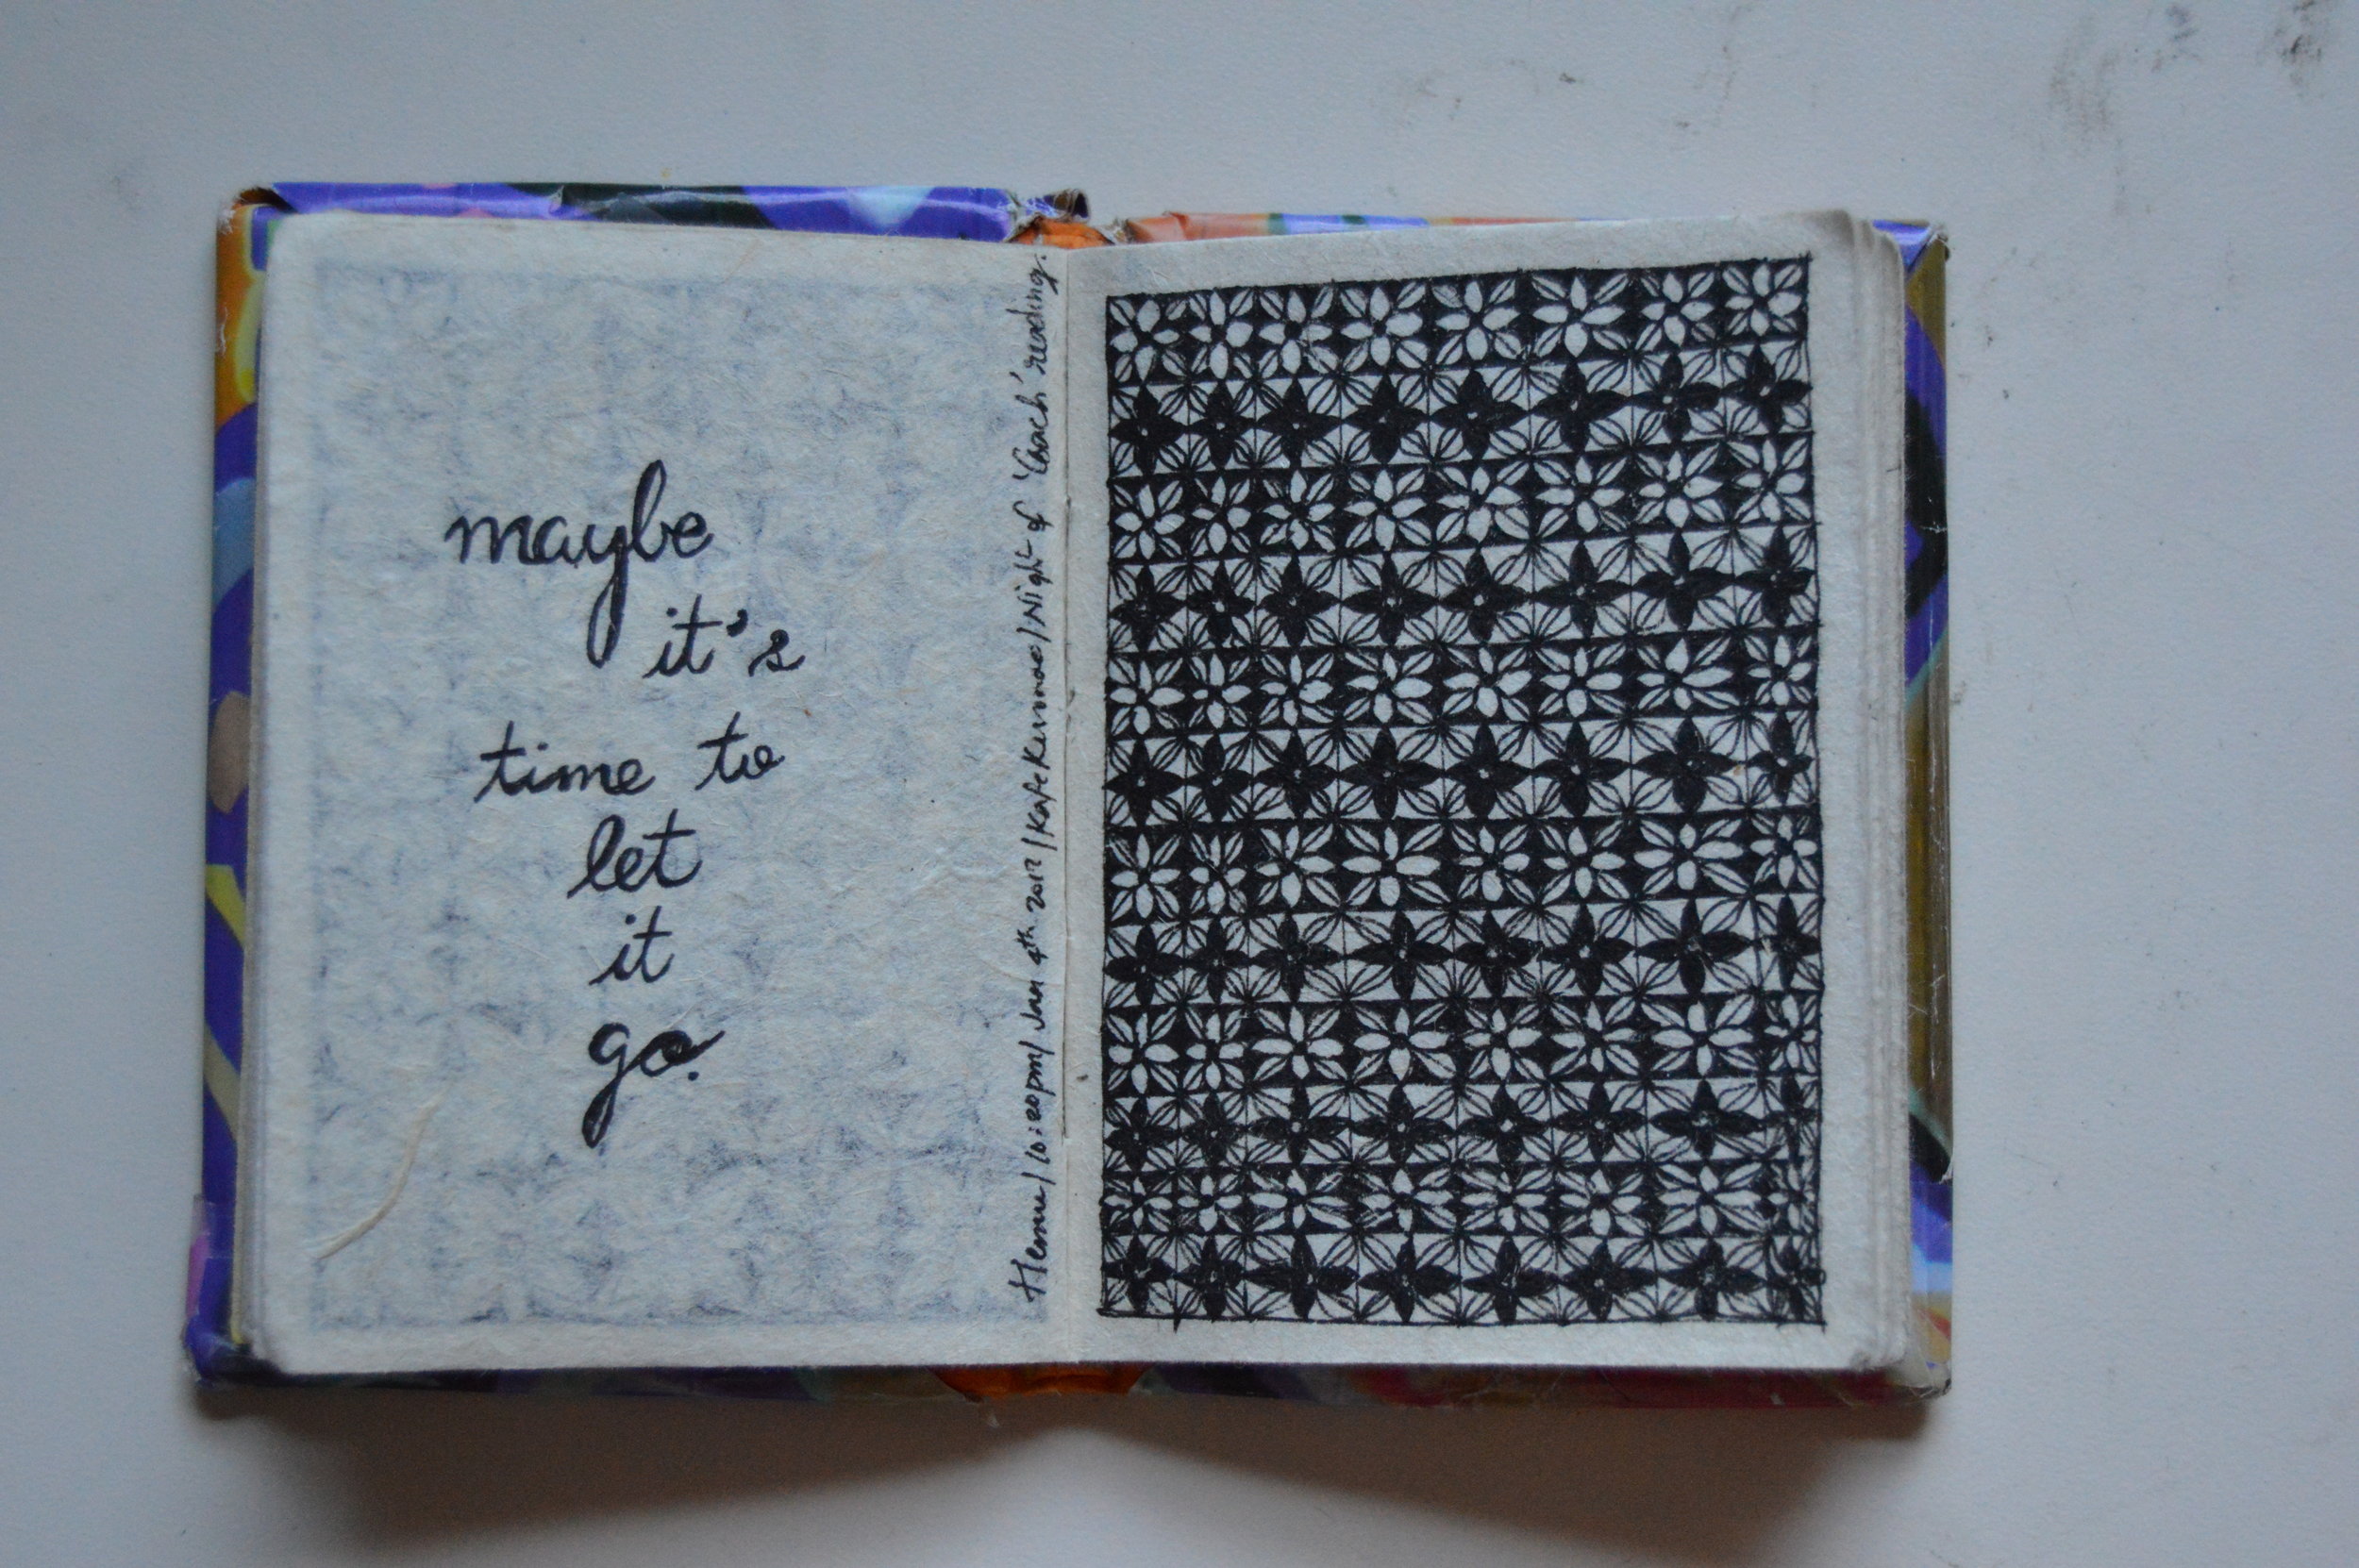 maybe
it's
time to
let
it
go.
Home/10:20pm/Jan 4th 2017/Kafe Kerinoe/Night of 'Coach' reading.